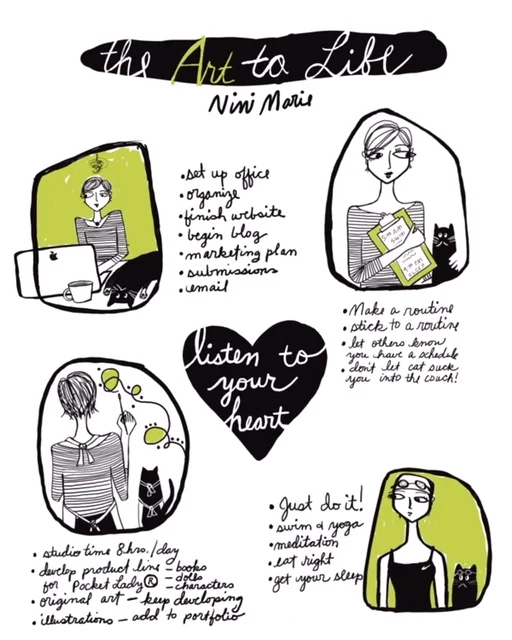 the Art to Life
Nini Marie
• set up office
• organize
• finish website
• begin blog
• marketing plan
• submissions
• email
• Make a routine
• stick to a routine
• let others know
you have a schedule
• don't let cat suck
you into the couch!
listen to
your
heart
• Just do it!
• swim & yoga
• meditation
• eat right
• get your sleep
• studio time 8 hrs./day
• develop product line – books
for Pocket Lady® – dolls
– characters
• original art – keep developing
• illustrations – add to portfolio